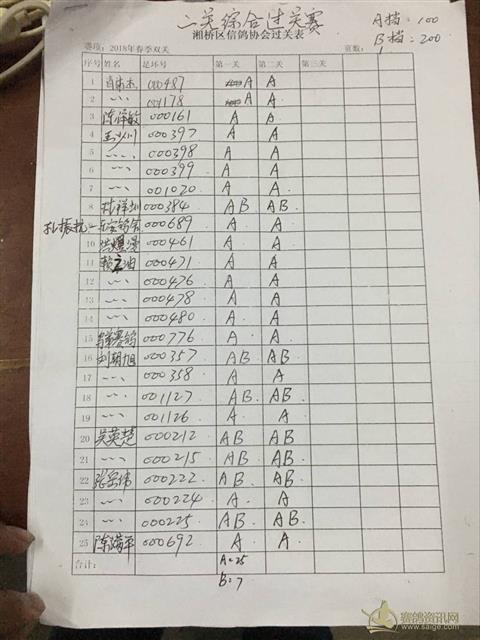 二关综合过关赛
A档：100
B档：200
湘桥区信鸽协会过关表
赛项：2018年春季双关 宣数：
序号 姓名 足环号 第一关 第二关 第三关
1 000487 A A
2 〃 001178 A A
3 陈泽敏 000161 A A
4 000397 A A
5 〃 000398 A A
6 〃 000399 A A
7 〃 001020 A A
8 000384 AB AB
9 000689 A A
10 000461 A A
11 000471 A A
12 〃 000476 A A
13 〃 000478 A A
14 〃 000480 A A
15 000776 A A
16 刘朝旭 000357 AB AB
17 〃 000358 A A
18 〃 001127 AB AB
19 〃 001126 A A
20 吴英楚 000212 AB AB
21 〃 000215 AB AB
22 张宗伟 000222 AB AB
23 〃 000224 A A
24 〃 000225 AB AB
25 000692 A A
合计： A=25
B=7
赛鸽资讯网
www.saige.com